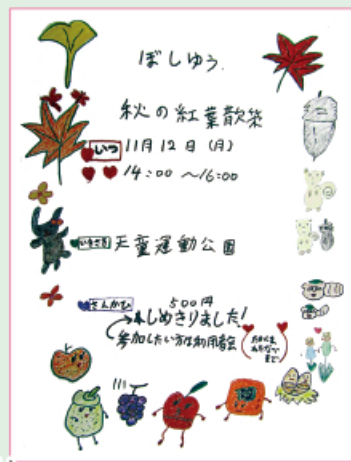 ぼしゅう
秋の紅葉散策
いつ 11月12日(月)
14:00 ～16:00
いきさき 天童運動公園
さんかひ 500円
しめきりました!
参加したい方は利用者会
まで